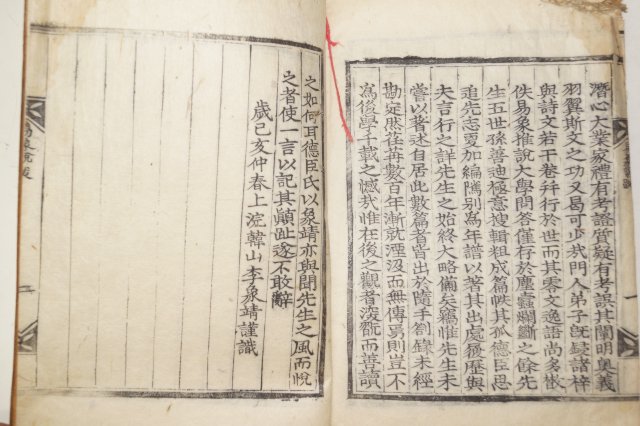 潛心大業家禮有考證質疑有考誤其闡明奧義
羽翼斯文之功又曷可少哉門人弟子旣鋟諸梓
與詩文若干卷幷行於世而其零文逸語尙多散
佚易象推說大學問答僅存於塵蠧爛斷之餘先
生五世孫善迪極意搜輯粗成篇帙其孤德臣思
追先志爰加編隲別爲年譜以著其出處履歷與
夫言行之詳先生之始終大略備矣竊惟先生未
嘗以著述自居此數篇者皆出於隨手箚錄未經
勘定然荏苒數百年漸就湮沒而無傳焉則豈不
爲後學千載之憾哉惟在後之觀者深翫而善讀
之如何耳德臣氏以象靖亦與聞先生之風而悅
之者使一言以記其顚趾遂不敢辭
歲己亥仲春上浣韓山李象靖謹識